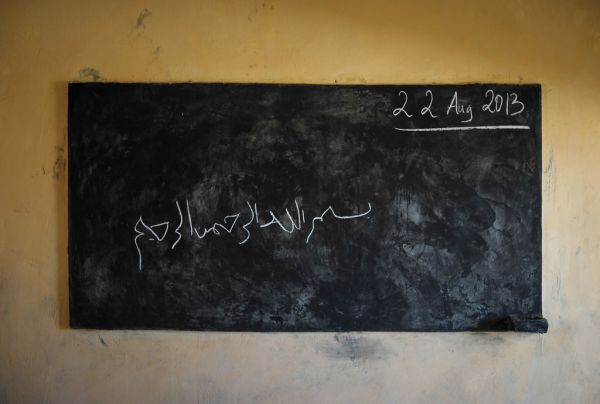 22 Aug 2013
بسم الله الرحمن الرحيم